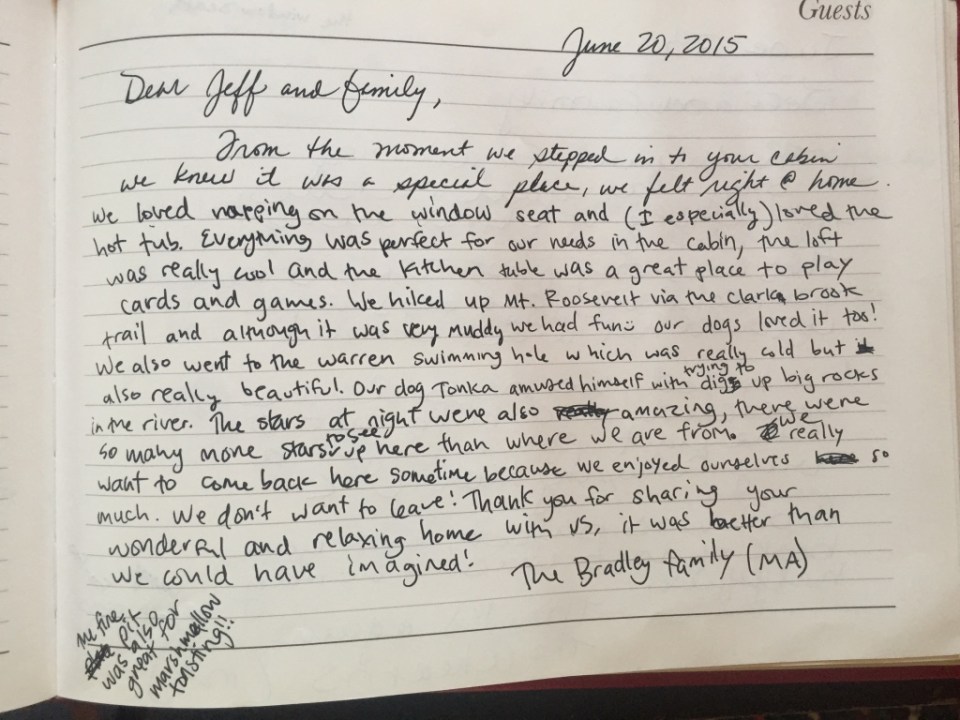 Guests
June 20, 2015
Dear Jeff and family,
From the moment we stepped in to your cabin
we knew it was a special place, we felt right @ home.
we loved napping on the window seat and (I especially) loved the
hot tub. Everything was perfect for our needs in the cabin, the loft
was really cool and the kitchen table was a great place to play
cards and games. We hiked up Mt. Roosevelt via the clark brook
trail and although it was very muddy we had fun☺ our dogs loved it too!
We also went to the warren swimming hole which was really cold but
also really beautiful. Our dog Tonka amused himself with trying to dig up big rocks
in the river. The stars at night were also amazing, there were
so many more stars to see up here than where we are from. We really
want to come back here sometime because we enjoyed ourselves so
much. We don't want to leave! Thank you for sharing your
wonderful and relaxing home with us, it was better than
we could have imagined!
The Bradley family (MA)
the fire
pit
was also
great for
marshmellow
toisting!!